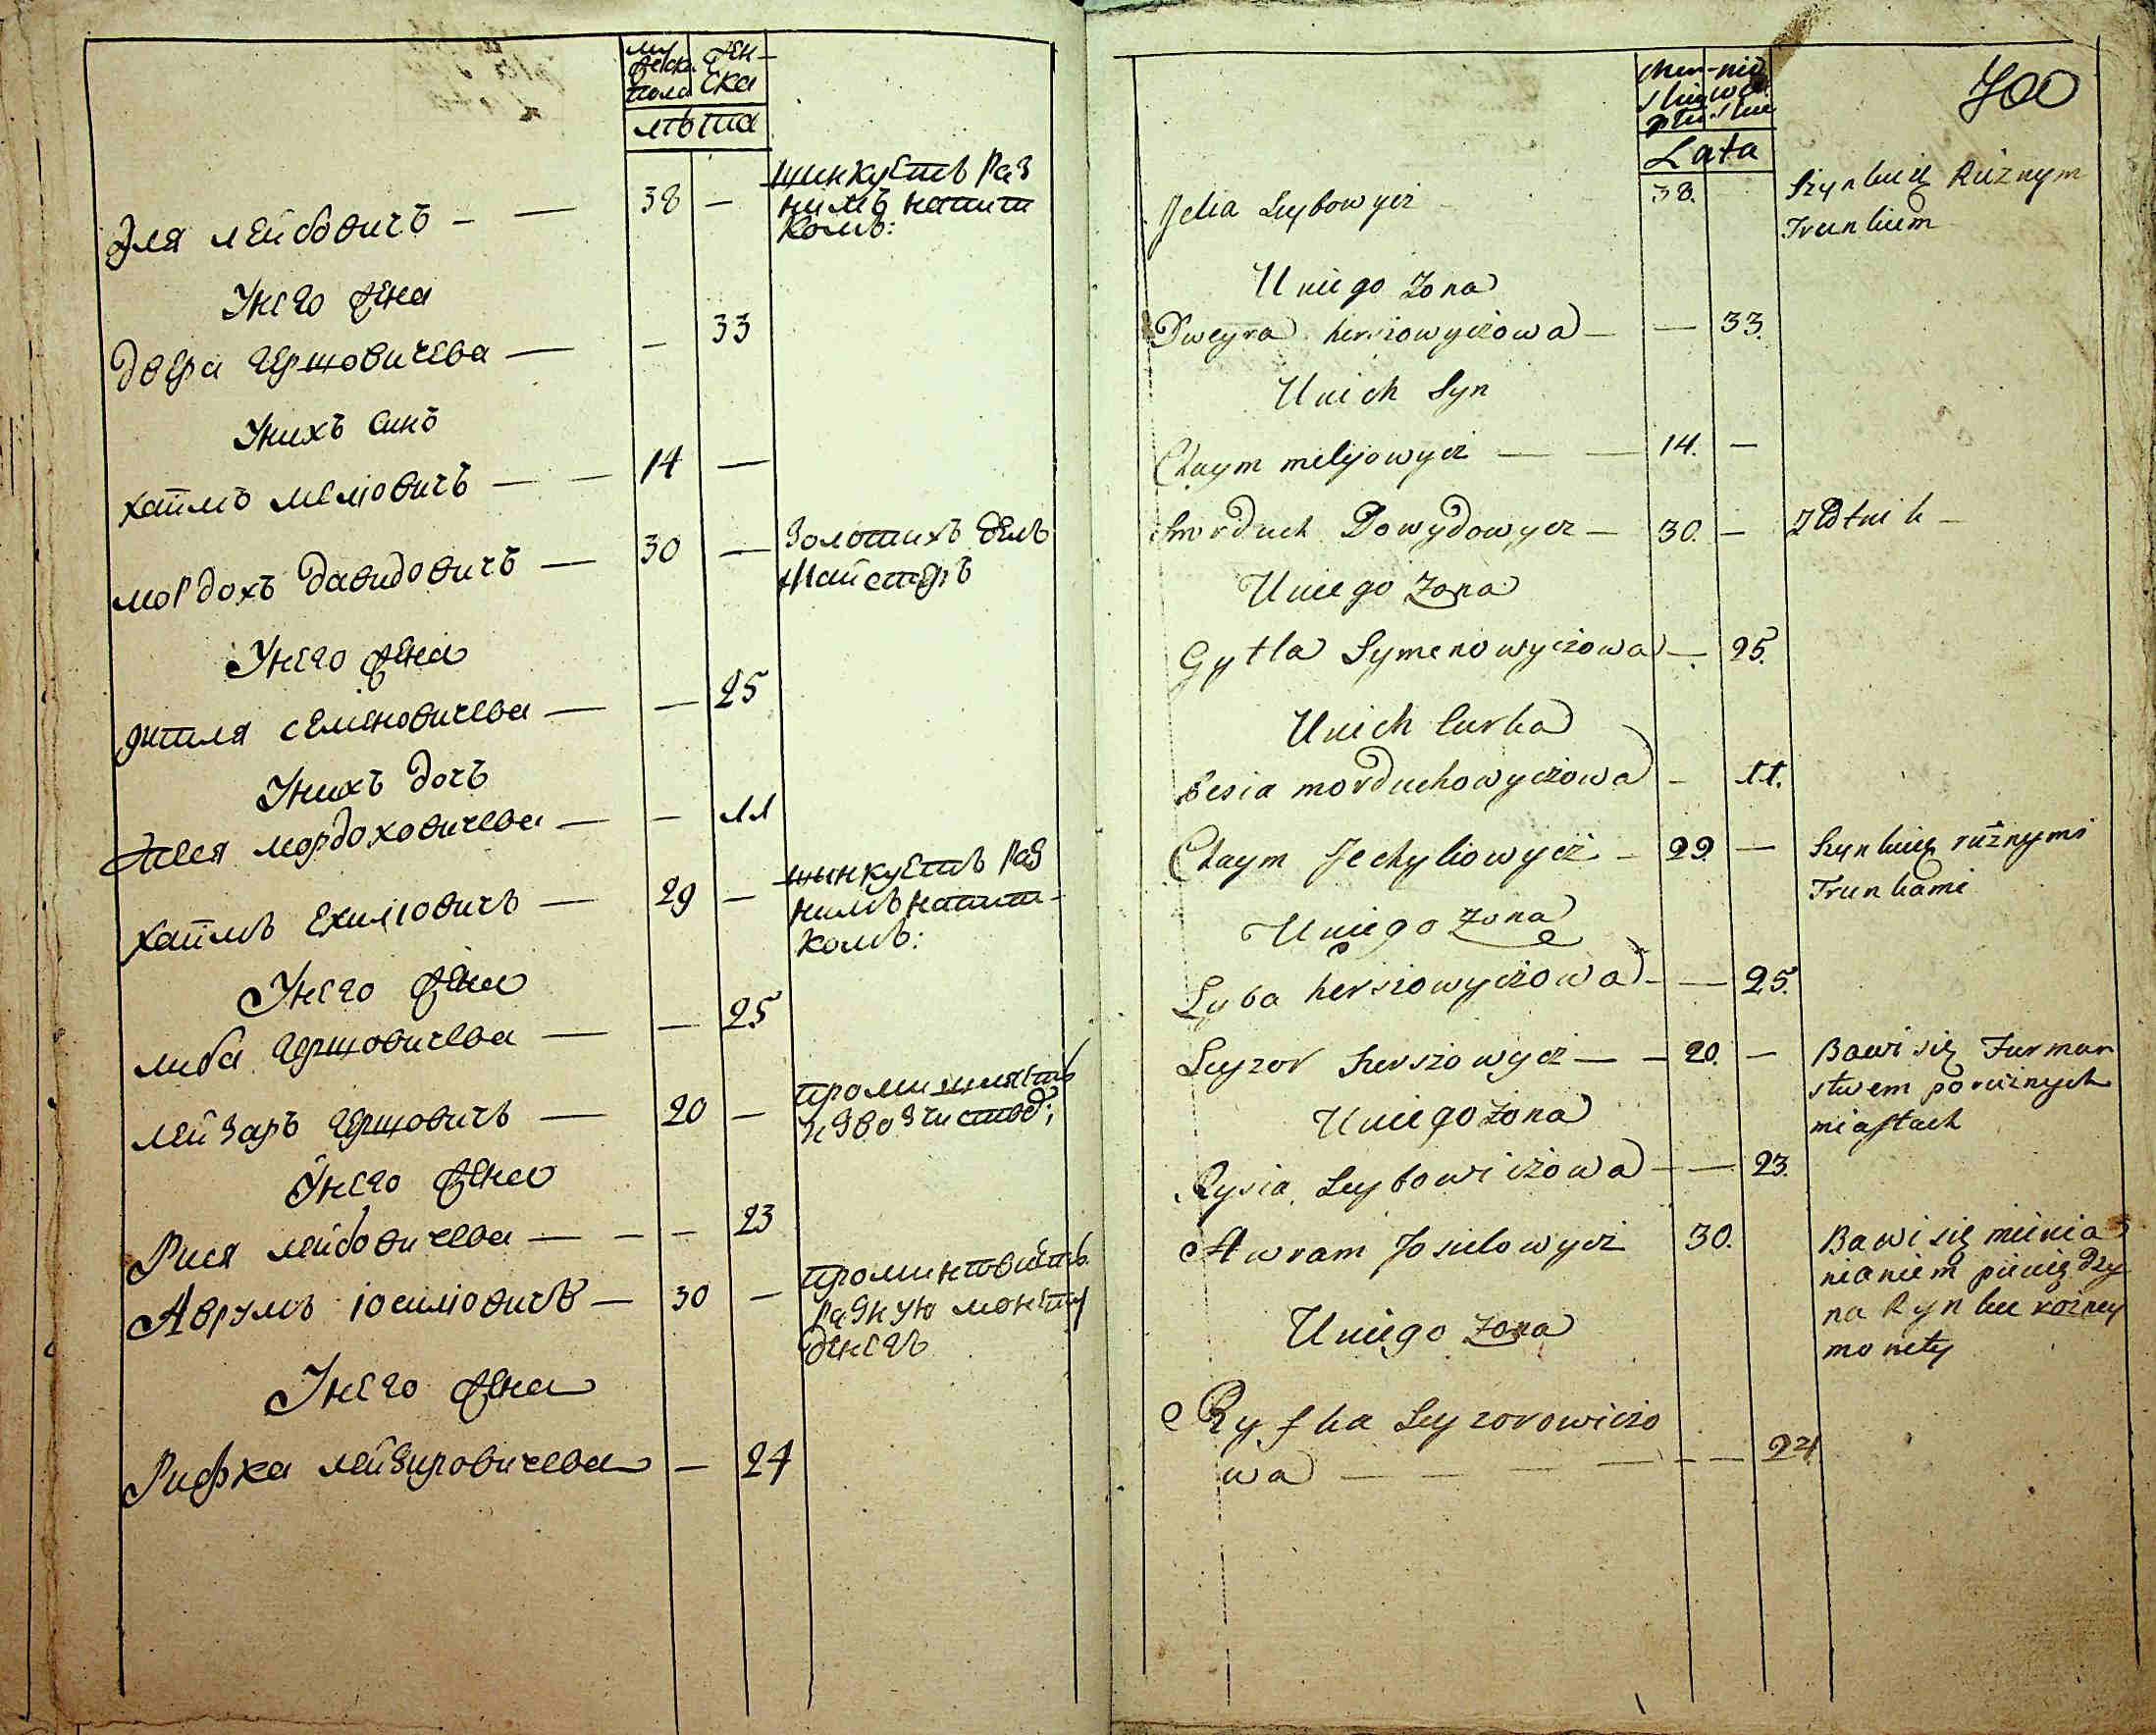 му
жеска
пола
жен-
ска
лѣта
Эля лейбовичъ - — 38 —
шинкуетъ раз
нимъ напит
комъ:
Унего жена
двейра гершовичева — — 33
Унихъ синъ
хаймъ меліовичъ — — 14 —
мордохъ давидовичъ — 30 —
Золотихъ делъ
майстеръ
Унего жена
гитля семеновичева — — 25
Унихъ дочъ
мордоховичева — — 11
хаймъ ехиліовичъ — 29 —
шынкуетъ раз
нимъ напит-
комъ:
Унего жена
либа гершовичева — — 25
лейзаръ гершовичъ — 20 —
промишляетъ
извозчиство;
Унего жена
Рися лейбовичева — — — 23
Аврумъ іосиліовичъ — 30 —
разную монету
денегъ
Унего жена
Рифка лейзировичева — 24
700
Lata
Jelia Leybowycz 38.
Szynkuię Rużnym
Trunkiem
Uniego Zona
Dweyra herszowyczowa — — 33.
Unich Syn
Chaym melijowycz — — 14. —
Morduch Dowydowycz — 30. —
Złotnik —
Uniego Zona
Gytla Symenowyczowa — 25.
Unich Curka
Pesia morduchowyczowa - 11.
Chaym Jechyliowycz - 29. —
Szynkuię rużnymi
Trunkami
Uniego Zona
Lyba herszowyczowa - — 25.
Leyzor herszowycz — - 20. —
Bawi się Furman
stwem po rużnych
miastach
Uniego Zona
Rysia Leybowiczowa - — 23.
Awram Josielowycz 30.
Bawi się mienia
nianiem pieniędzy
na Rynku rożney
monety
Uniego Zona
Ryfka Leyzorowiczo
wa — — — — - — 24